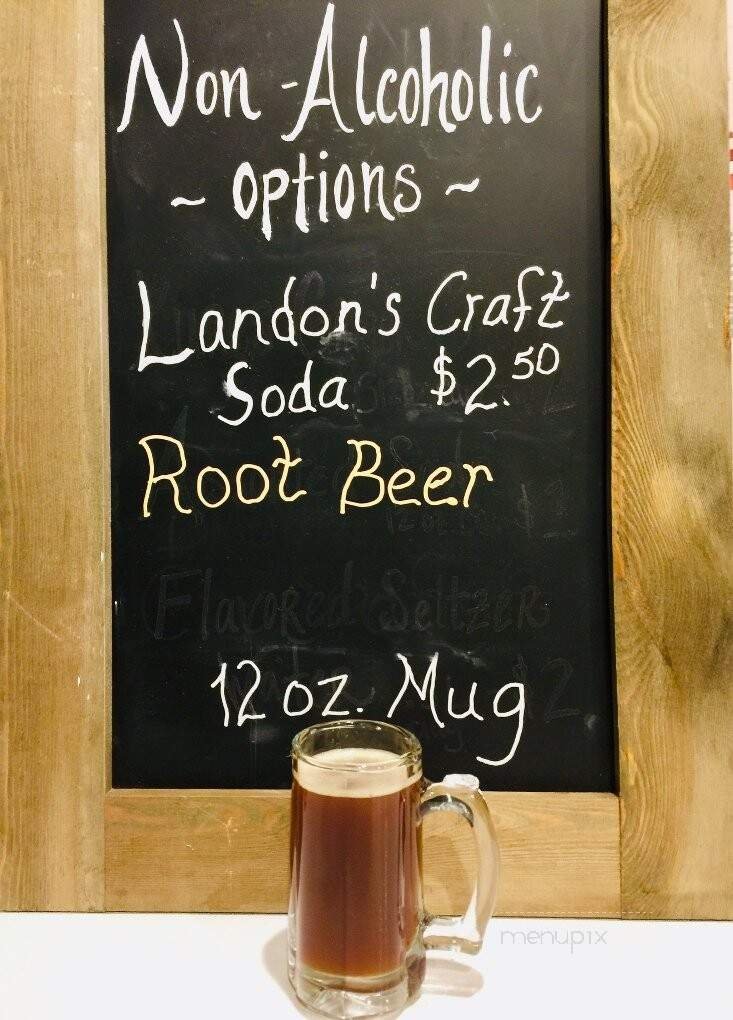 Non-Alcoholic
~ options ~
Landon's Craft
Soda $2.50
Root Beer
Flavored Seltzer
12 oz. Mug
menupix